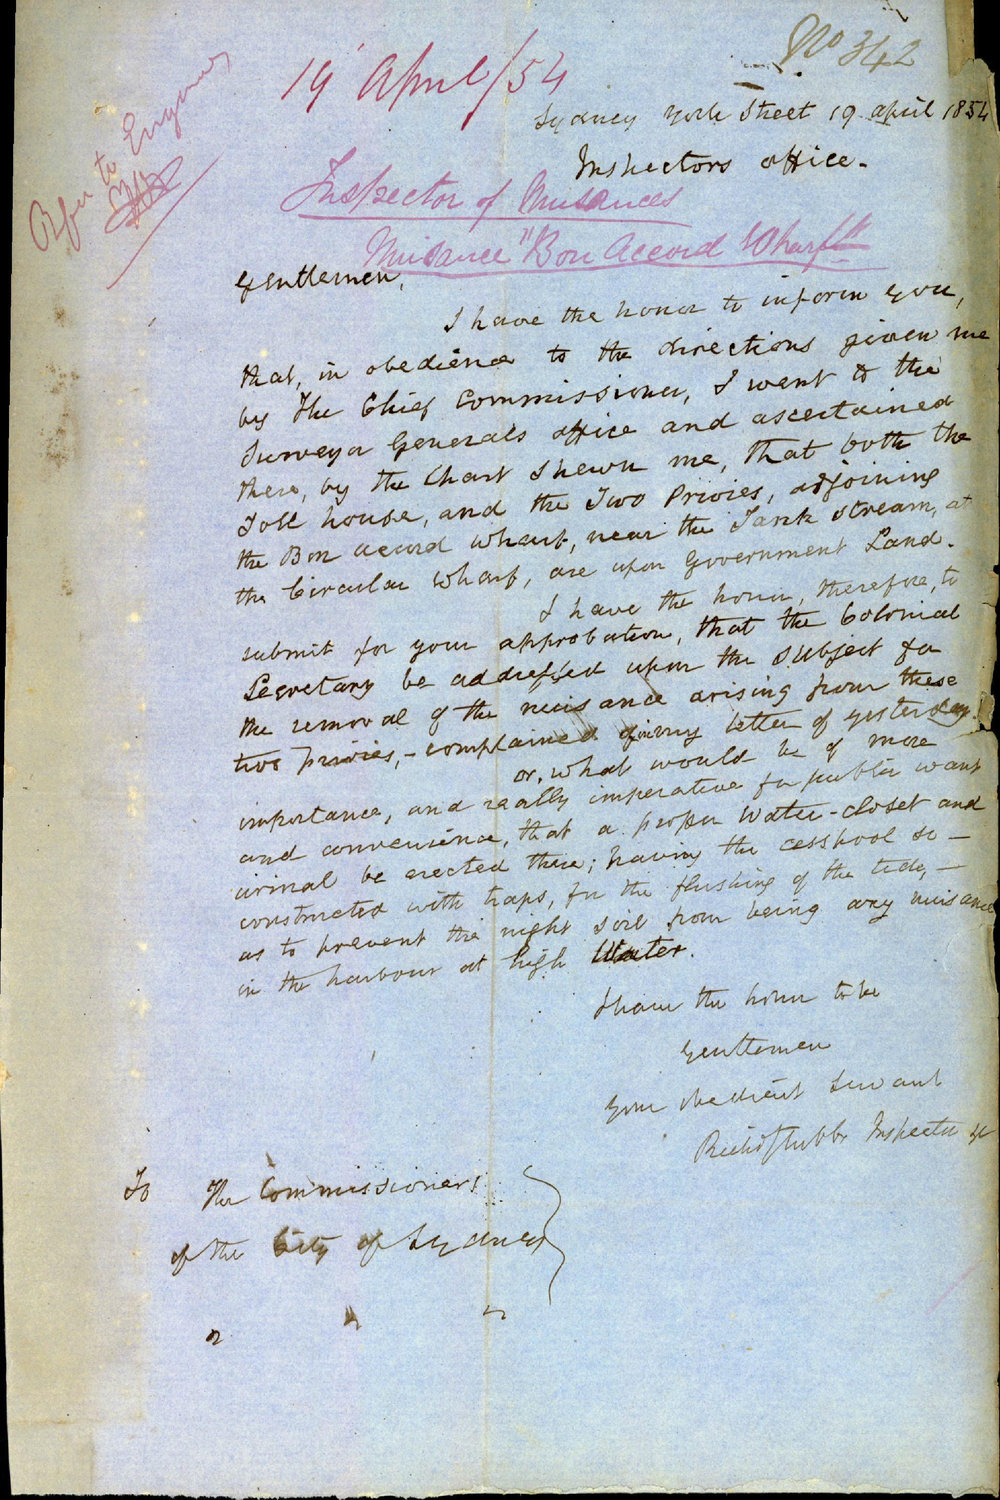 No 342
19 April/54
Refer to Engineer
Sydney York Street 19 april 1854
Inspectors office.
Inspector of Nuisances
Nuisance "Bon Accord Wharf"
Gentlemen,
I have the honor to inform you,
that, in obedience to the directions given me
by The Chief Commissioner, I went to the
Surveyor Generals office and ascertained
there, by the Chart shewn me, that both the
Toll house, and the Two Privies, adjoining
the Bon accord wharf, near the Tank stream, at
the Circular wharf, are upon Government Land.
I have the honor, therefore, to
submit for your approbation, that the Colonial
Secretary be addressed upon the subject for
the removal of the nuisance arising from these
two privies, - complained of in my letter of yesterday.
or, what would be of more
importance, and really imperative for public want
and convenience, that a proper Water-closet and
urinal be erected there; having the cesspool so -
constructed with traps, for the flushing of the tide, -
as to prevent the night soil from being any nuisance
in the harbour at high Water.
I have the honor to be
Gentlemen
Your obedient Servant
Richd Stubbs Inspector
To The Commissioners
of the City of Sydney